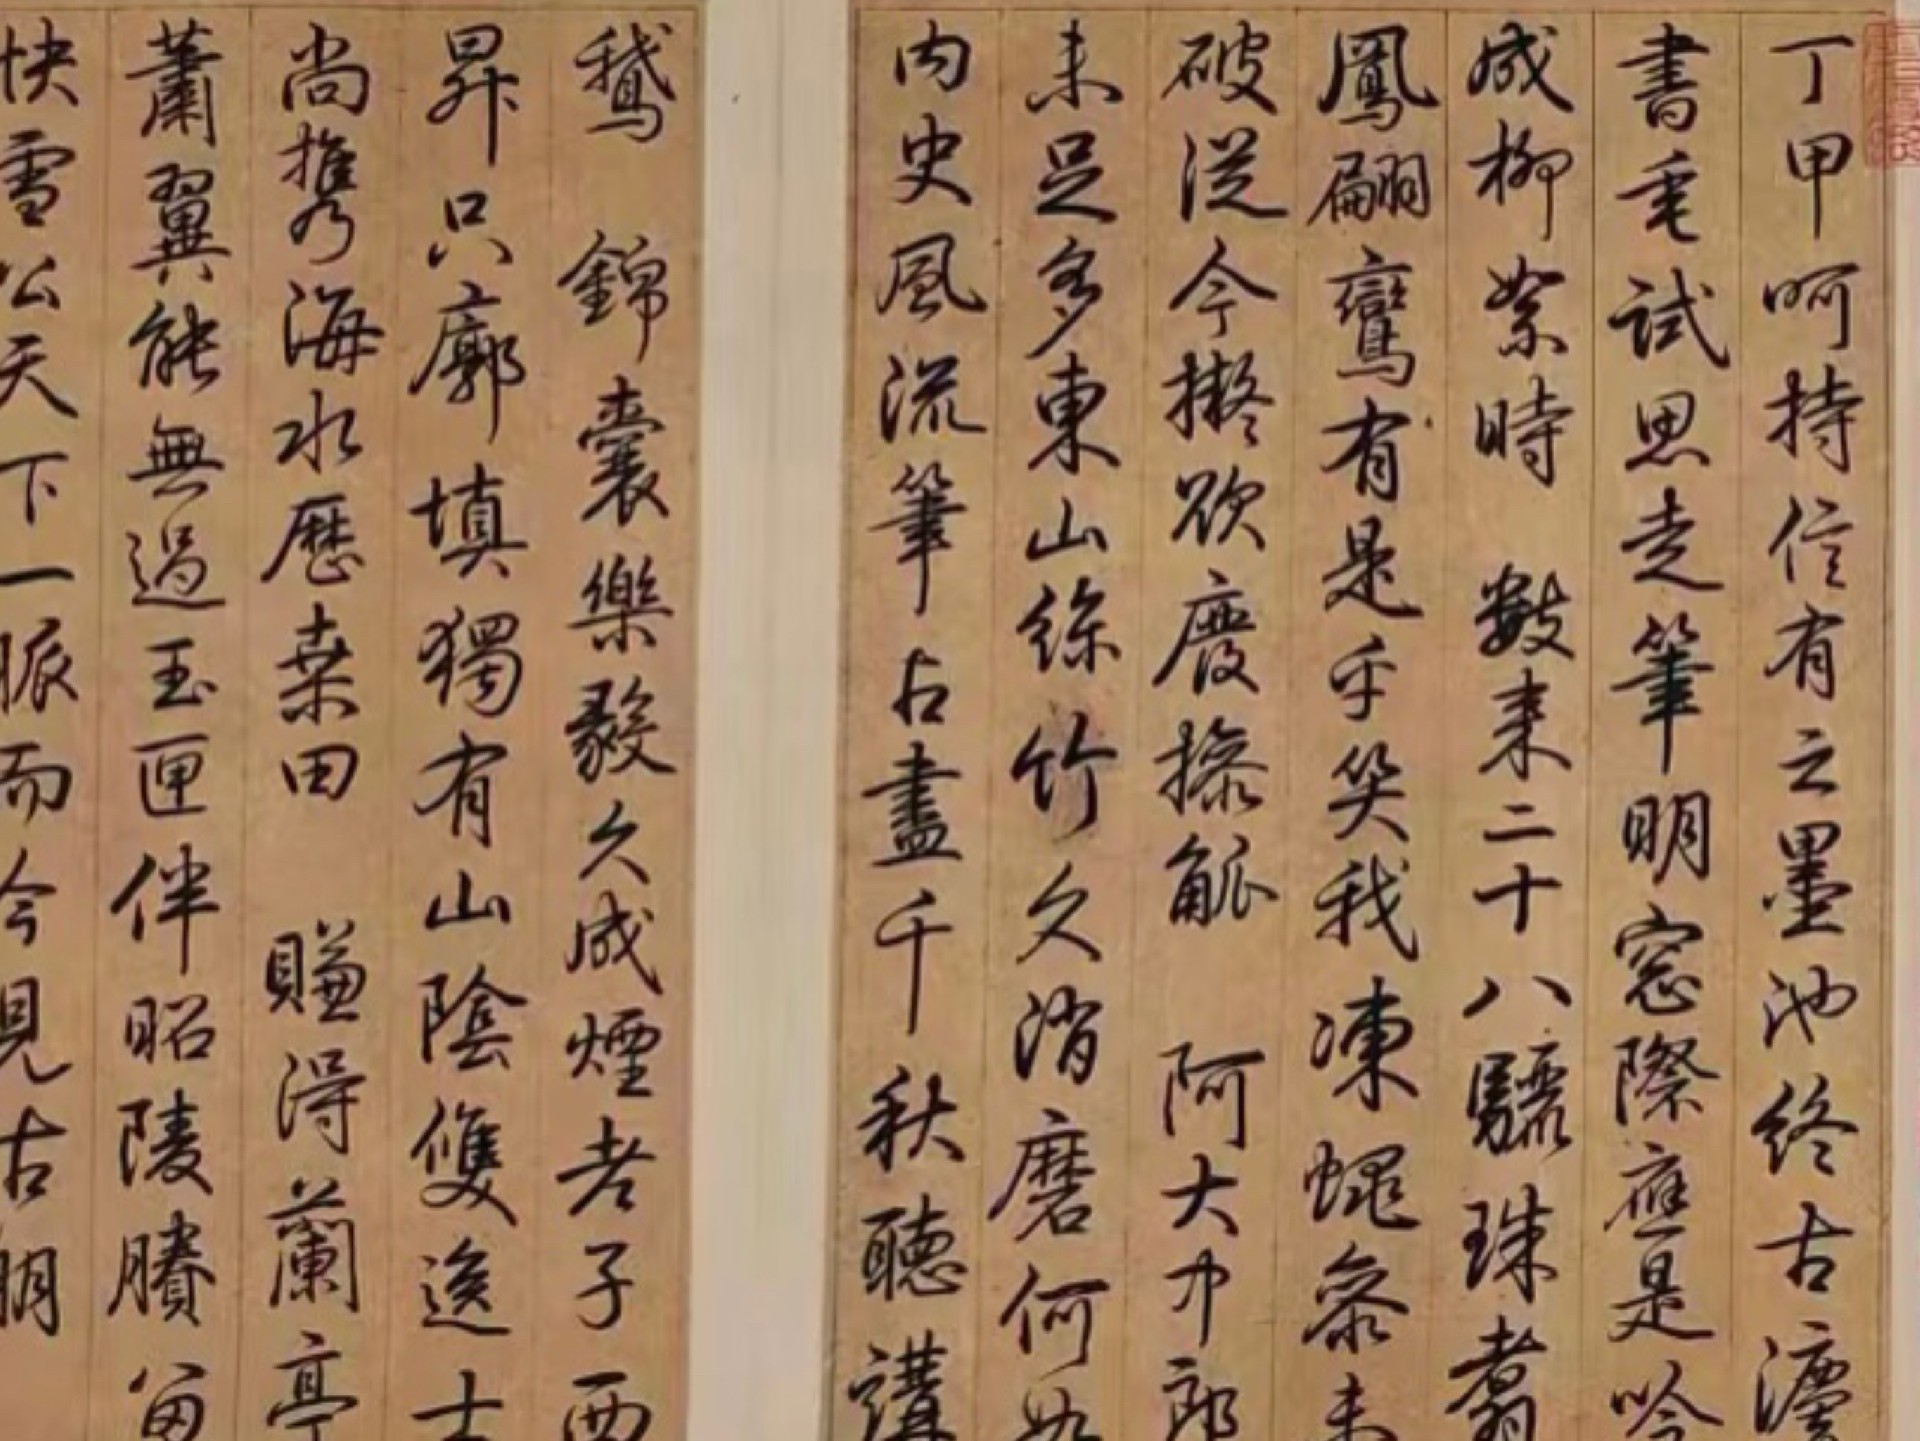 丁甲呵持信有之墨池終古
書重試思走筆明窓際應是吟
成柳絮時 數来二十八驪珠翥
鳳翩鸞有是乎笑我凍蠅叅未
破従今擬欲廢操觚 阿大中郎
未足多東山絲竹久消磨何如
内史風流筆占盡千秋聽講
鵞 錦囊樂毅久成煙老子西
昇只廓填獨有山陰雙逸士
尚携海水歷桒田 賺得蘭亭
蕭翼能無過玉匣伴昭陵賸留
快雪公天下一脈而今見古朋